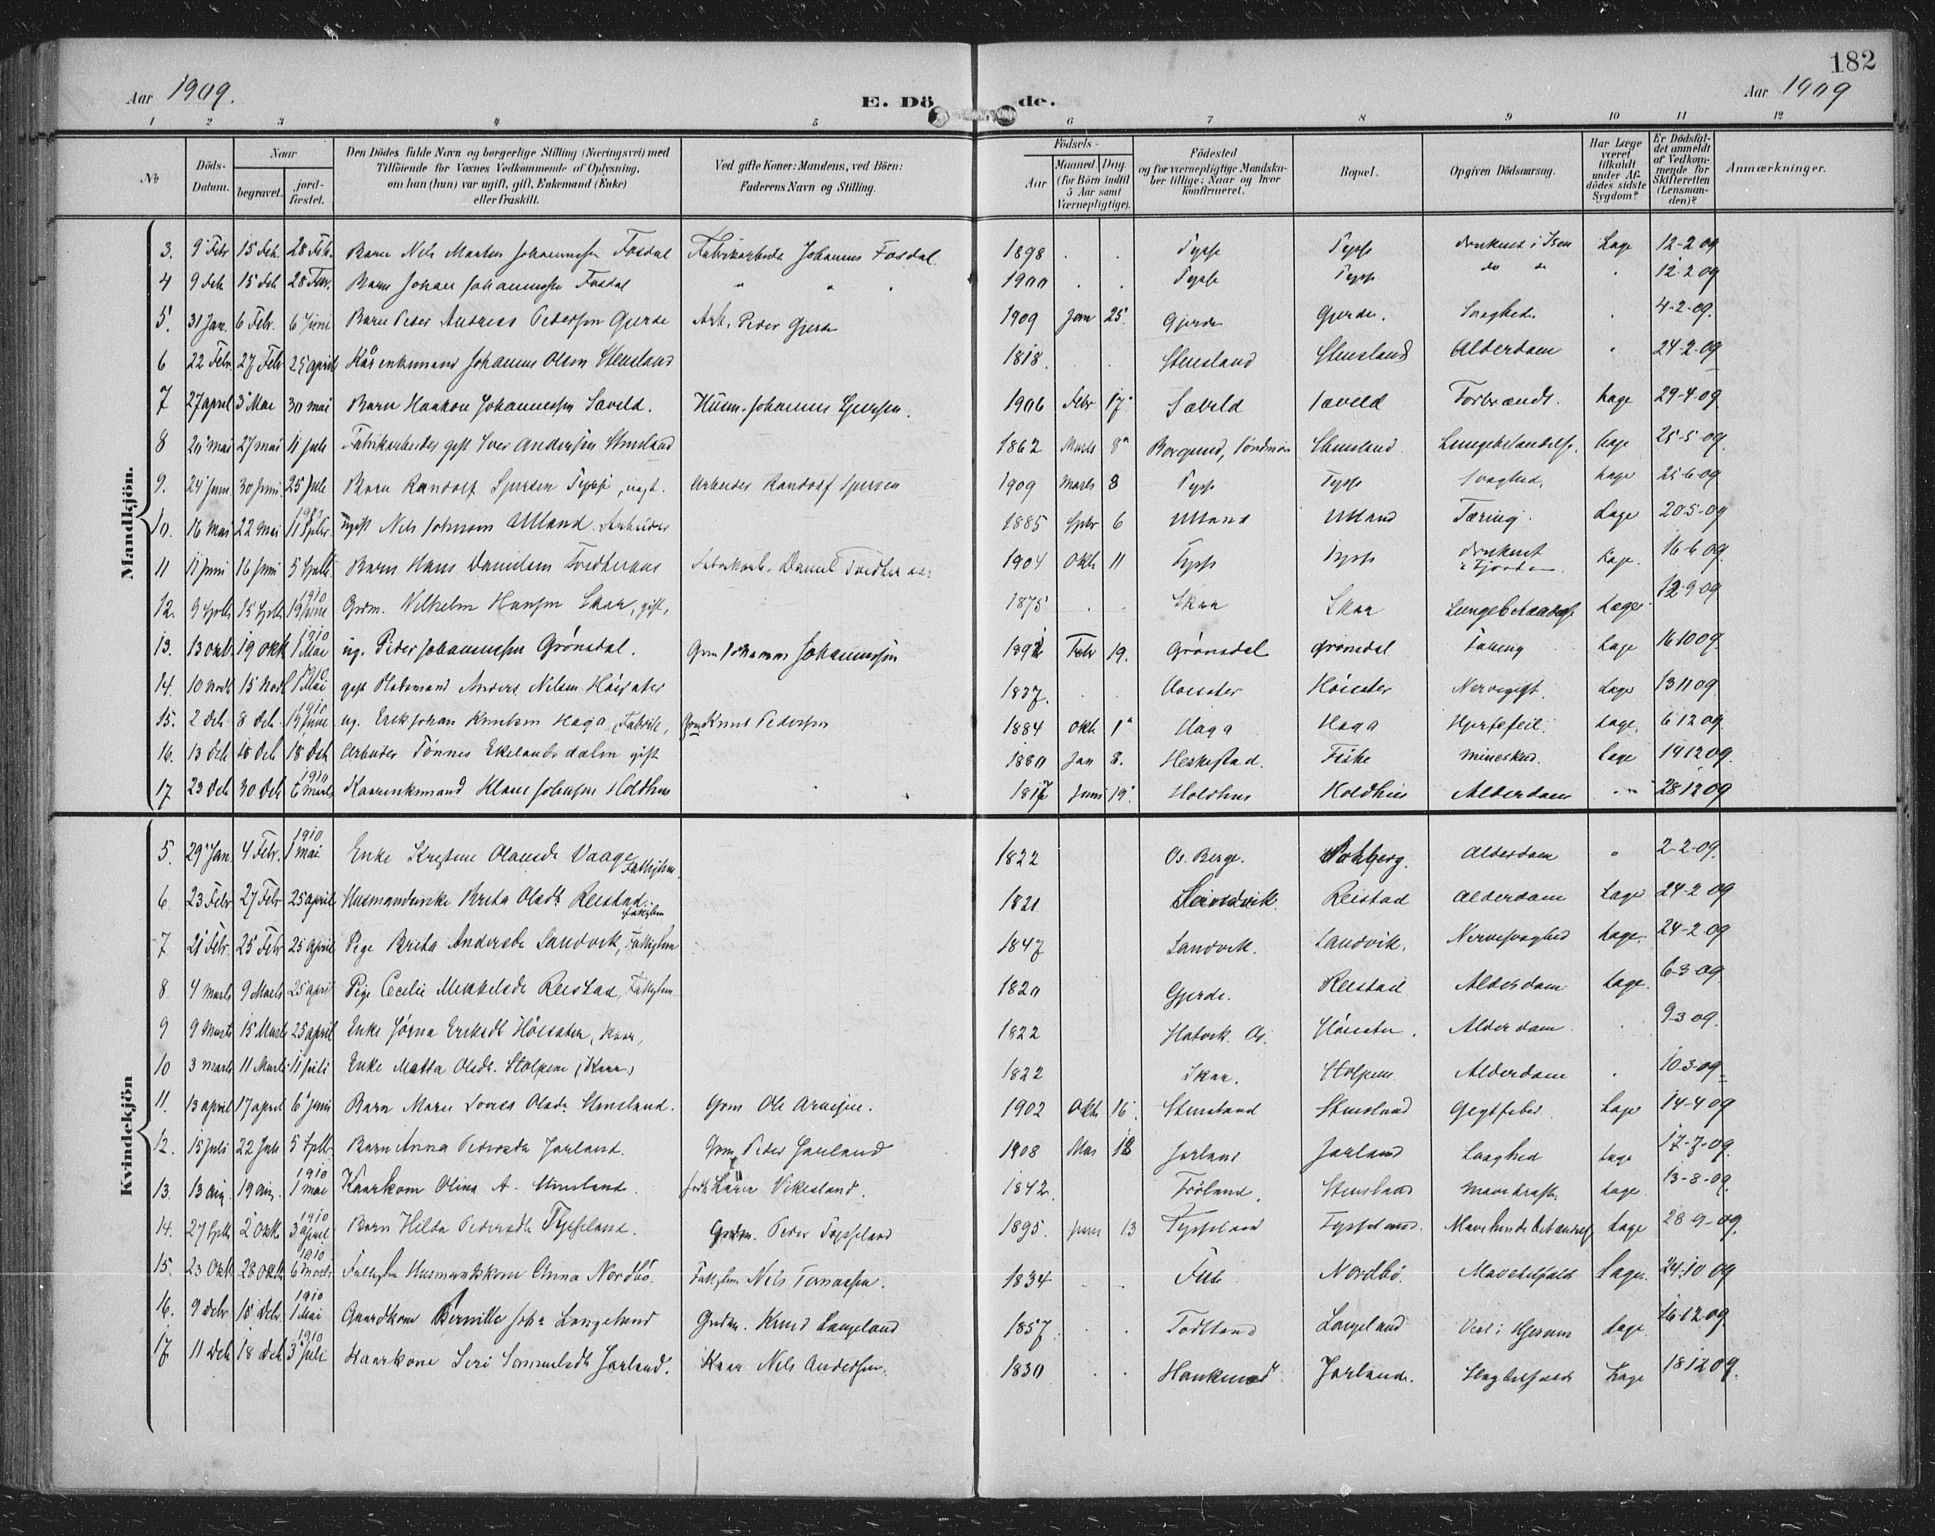 182
Aar 1909.
E. Dö de.
Aar 1909
1 2 3 4 5 6 7 8 9 10 11 12
No
Döds-Datum.
Naar
begravet.
jord-fæstet.
Den Dödes fulde Navn og borgerlige Stilling (Næringsvei) med Tilföiende for Voxnes Vedkommende af Oplysning, om han (hun) var ugift, gift, Enkemand (Enke) eller fraskilt.
Ved gifte Koner: Mandens, ved Börn: Faderens Navn og Stilling.
Födsels-
Aar
Maaned. Dag.
(for Börn indtil 5 Aar samt Værnepligtige).
Födested og for værnepligtige Mandskaber tillige: Naar og hvor konfirmeret.
Bopæl.
Opgiven Dödsaarsag.
Har Læge været tilkaldt under Afdödes sidste Sygdom?
Er Dödsfaldet anmeldt af Vedkommende for Skifteretten (Lensmanden)?
Anmærkninger.
Mandkjön.
3. 9 Febr 15 Feb. 28 Feb. Barn Nils Martin Johannessen Fosdal Fabrikarbeider Johannes Fosdal. 1898 Tysse Tysse druknet i Læge 12-2 09
4 9 Feb 15 Feb 28 Febr. Barn Johan Johannessen Fosdal 1900 Tysse Tysse do do 12. 2 09
5. 31 Jan. 6 Febr. 6 Juni Barn Peder Andreas Pedersen Gjerde Arb. Peder Gjerde 1909 Jan 25. Gjerde Gjerde. Svaghed. 4-2-09.
6 22 Febr. 27 Febr 25 april Kårenkemand Johannes Olsen Stensland 1818. Stensland Stensland Alderdom 24-2-09
7 27 april 3 Mai 30 mai Barn Haakon Johannessen Sæveld. Husm. Johannes 1906 Febr 17. Sæveld Sæveld Forbrændt. Læge 29-4-09
8 20 mai 27 mai 11 juli Fabrikarbeider gift Iver Andersen Stensland 1862 Marts 8 Borgund, Söndmör Stensland Lungebetændelse. Læge 25-5-09.
9. 24 Juni 30 Juni 25 Juli Barn Randolf Tysse, Arbeider Randolf 1909 Marts 8 Tysse Tysse Svaghed. Læge 25-6-09
10. 16 Mai 22 Mai 1910 11 Septbr. ugift Nils Johnsen Ulland. Arbeider 1885 Sptbr 6 Ulland Ulland Tæring. Læge 20-5-09
11 11 juni 16 Juni 5 Septb. Barn Hans Danielsen Tvedteraas Fabrikarb. Daniel 1904 Okt 11 Tysse Tysse druknet i Fjorden. Læge. 16-6 09
12. 9 Septb. 15 Septb. 1910 19 juni Grm. Vilhelm Hansen Skaar, gift, 1875 Skaar Skaar Lungebetændelse Læge 12-9-09
13. 13 okt. 19 okt 1910 1 Mai ug. Peder Johannessen Grönsdal. Grm Johannes Johannessen 1892 Febr 19. Grönsdal Grönsdal Tæring Læge 16 10 09
14. 10 Novb 15 Novb 1910 1 Mai gift Pladsmand Anders Nilsen Höisæter 1837. Höisæter Höisæter Nervegigt. Læge 13 11 09
15. 2 Deb. 8 Deb. 1910 19 Juni ug. Erik Johan Knutsen Haga, (Fabrik, Grm Knut Pedersen 1884 Okt 1 Haga Haga Hjertefeil. Læge. 6 12 09
16. 13 Deb 18 Deb 18 Deb Arbeider Tönnes Ekelandsdalen gift 1880 Jan 8. Heskestad. Fiske mineskud. Læge 14 12 09.
17 23 Deb 30 Deb 1910 6 Marts Kaarenkemand Klaus Johnsen Holdhus 1817 Juni 19. Holdhus Holdhus Alderdom 28 12 09
Kvindekjön
5. 29 Jan. 4 Febr. 1910 1 mai Enke Kristine Olausdt Vaage, Fattiglem. 1822 Os. Berge. Alderdom 2-2-09.
6. 23 Febr 27 Febr 25 april Husmandsenke Brita Olsdt. Reistad. Fattiglem 1821 Reistad Alderdom Læge 24-2 09
7 21 Febr. 25 Febr 25 april Pige Brita Andersdt Sandvik, Fattiglem 1847 Sandvik. Sandvik. Nervesvaghed Læge. 24-2 09
8 4 marts 9 Marts 25 april Pige Cecilie Mikkelsdt Reistad, Fattiglem 1820 Gjerde. Reistad Alderdom Læge. 6-3-09.
9 9 Marts 15 Marts 25 april Enke Jörna Eriksdt Höisæter, Kaar, 1822 Hatvik. Os. Höisæter. Alderdom 9-3 09.
10 3 marts 11 Marts. 11 juli Enke Matta Olsdt. Stolpene (Kaar) 1822 Skaar. Stolpene Alderdom 10-3-09
11. 13 april 17 april 6 juni Barn Mari Lovisa Olsdt. Stensland. Grm Ole Arnesen. 1902 Okt. 16. Stensland Stensland Gigtfeber Læge 14-4 09
12. 15 juli 22 Juli 5 Septb. Barn Anna Pedersdt Jarland. Grm Peder Jarland 1908 Mai 18 Jarland Jarland Svaghed Læge 17-7-09.
13. 13 aug. 19 aug. 1910 1 mai Kaarkone Olina A. Stensland. Vikesland. 1842. Fröland. Stensland Mavekræft. Læge. 13-8-09.
14. 27 Septb. 2 Oktb. 1910 3 april Barn Hilda Pedersdt Tysseland. Grdm. Peder Tysseland 1895. juni 13 Tysseland Tysseland. Mavehindebetændelse Læge 28 9-09.
15. 23 Okt 28 Okt. 1910 6 Marts Fattiglem Husmandskone Anna Nordbö. Fattiglem Nils 1834 Fuse Nordbö. Mavetilfælde Læge. 24-10 09
16. 9 Debr. 15 Debr. 1910 1 Mai Gaardkone Pernille Langeland Grdm. Knud Langeland 1857 Todtland Langeland Vest i Læge 16-12 09
17 11 Deb 18 Deb 1910 3 juli Kaarkone Siri Samuelsdt Jarland. Kaar Nils Andersen. 1830 Jarland. Slagtilfælde Læge 18 12 09.